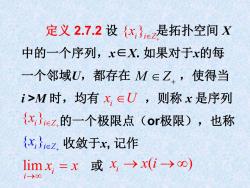 定义 2.7.2 设 {xᵢ}_{i∈Z₊}是拓扑空间 X
中的一个序列，x∈X. 如果对于x的每
一个邻域U，都存在 M ∈ Z₊ ，使得当
i >M 时，均有 xᵢ ∈U ，则称 x 是序列
{xᵢ}_{i∈Z₊}的一个极限点（or极限），也称
{xᵢ}_{i∈Z₊} 收敛于x, 记作
lim_{i→∞} xᵢ = x 或 xᵢ → x(i → ∞)